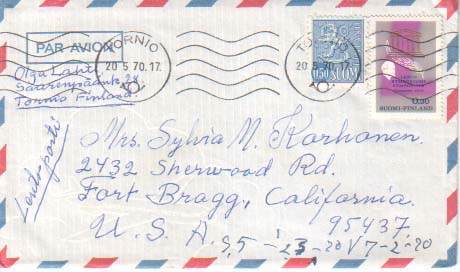 PAR AVION
TORNIO
20 5 70.17.
TORNIO
20 5 70.17.
0,50 SUOMI
SUOMI-FINLAND
0.50
Olga Lahti
24
Tornio Finland
Lentoposti
Mrs. Sylvia M. Korhonen.
2432 Sherwood Rd.
Fort Bragg, California.
95437.
U. S. A.